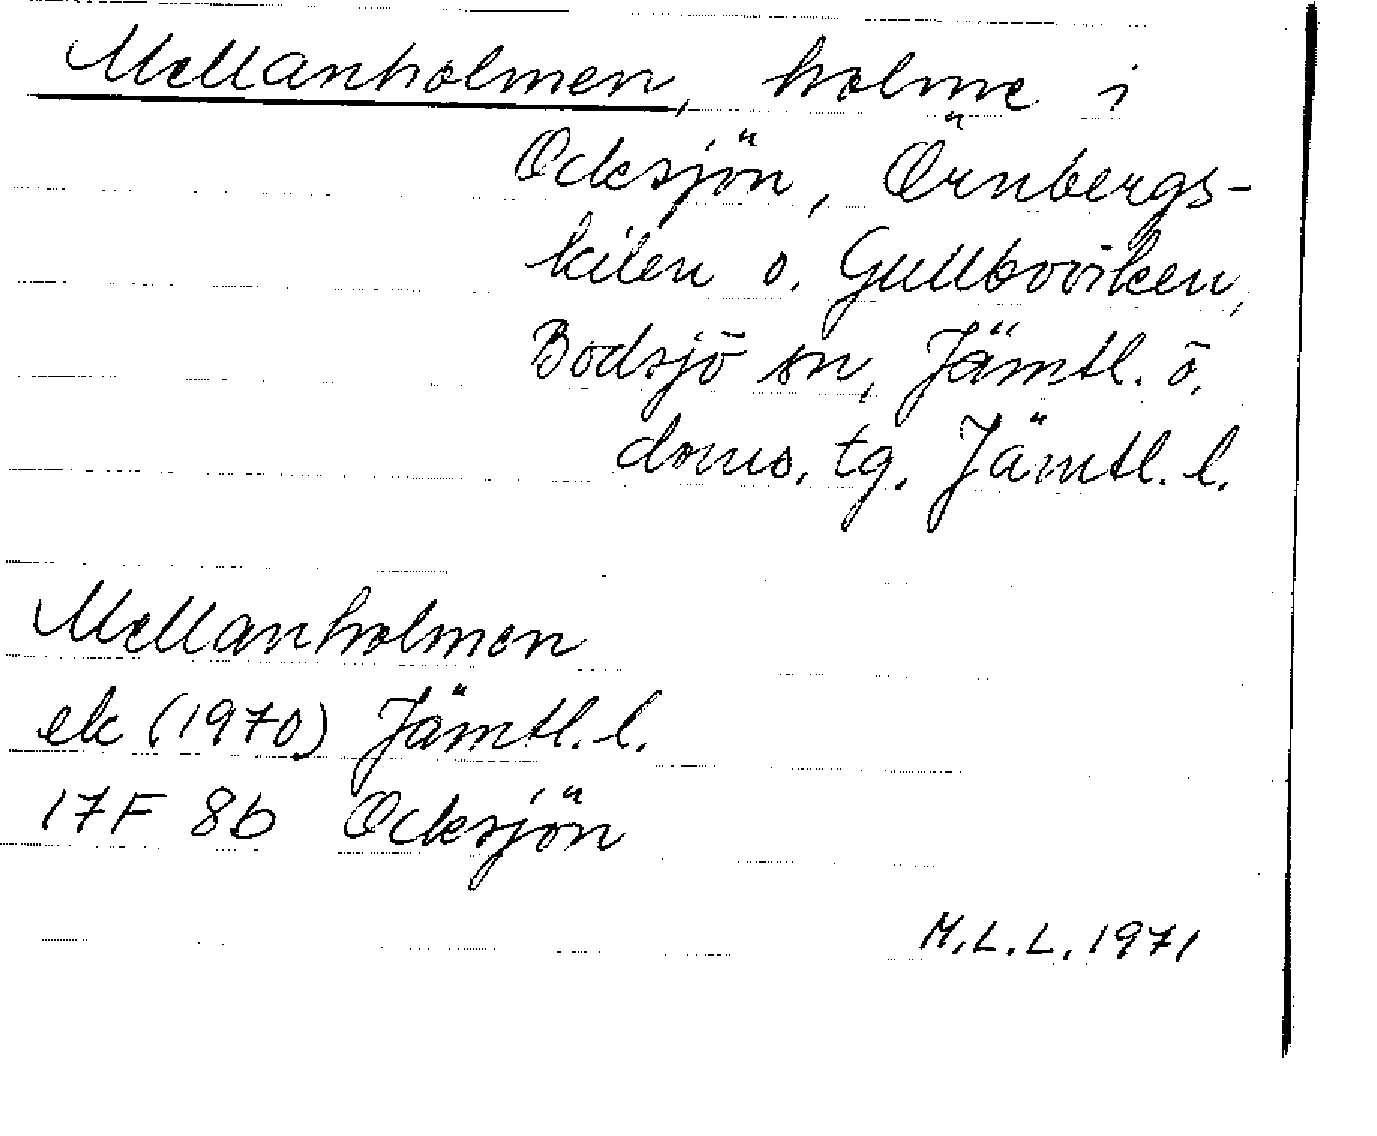 Mellanholmen, holme i
Ocksjön, Örnbergs-
kilen o. Gullboviken,
Bodsjö sn, Jämtl. ö.
doms. tg. Jämtl. l.
Mellanholmen
ek (1970) Jämtl. l.
17F 8b Ocksjön
M.L.L. 1971